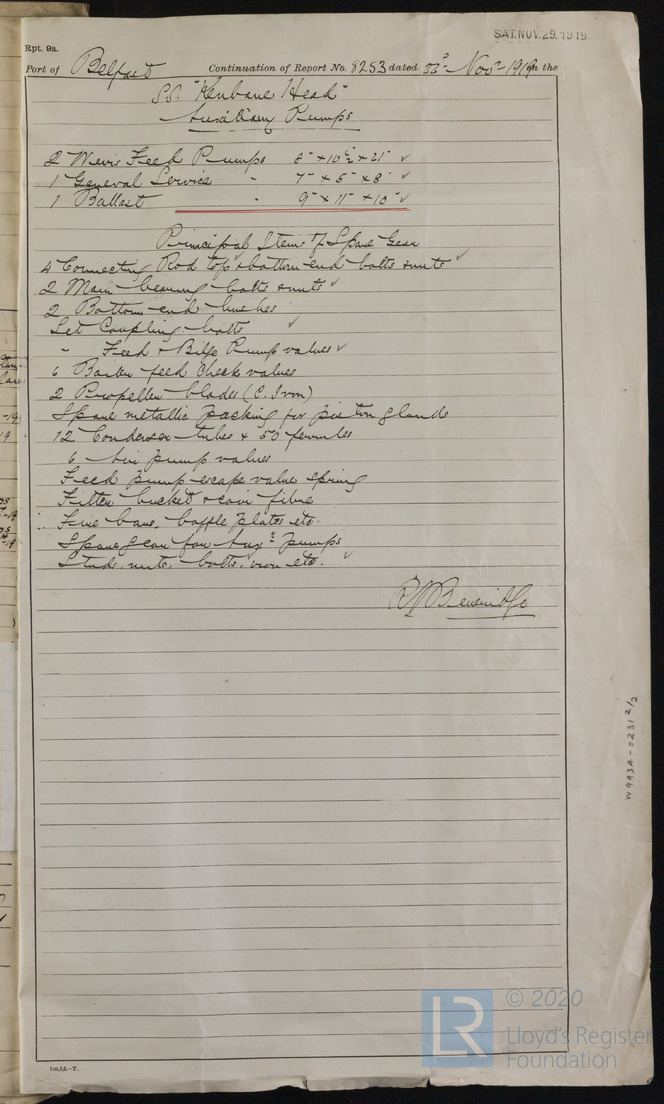 SAT. NOV. 29. 1919
Rpt. 9a.
Port of Belfast Continuation of Report No. 8253 dated Novr 1919 on the
S.S. "Kenbane Head"
Auxiliary Pumps
2 Weir Feed Pumps 8" x 10½" x 21" ✓
1 General Service " 7" x 5" x 8" ✓
1 Ballast " 9" x 11" x 10" ✓
Principal Items of Spare Gear
4 Connecting Rod top & bottom end bolts & nuts ✓
2 Main bearing bolts & nuts ✓
2 Bottom end bushes
Set Coupling bolts ✓
" Feed & Bilge Pump valves ✓
6 Boiler feed check valves
2 Propeller blades (C. Iron)
Spare metallic packing for piston glands
12 Condenser tubes & 50 ferrules
6 Air pump valves
Feed pump escape valve spring
Filter bucket & coir fibre
Fire bars, baffle plates etc.
Spare gear for Auxy pumps
Studs, nuts, bolts, iron etc. ✓
W993A-0231 2/2
1m,3,6.-T.
LR
© 2020
Lloyd's Register
Foundation